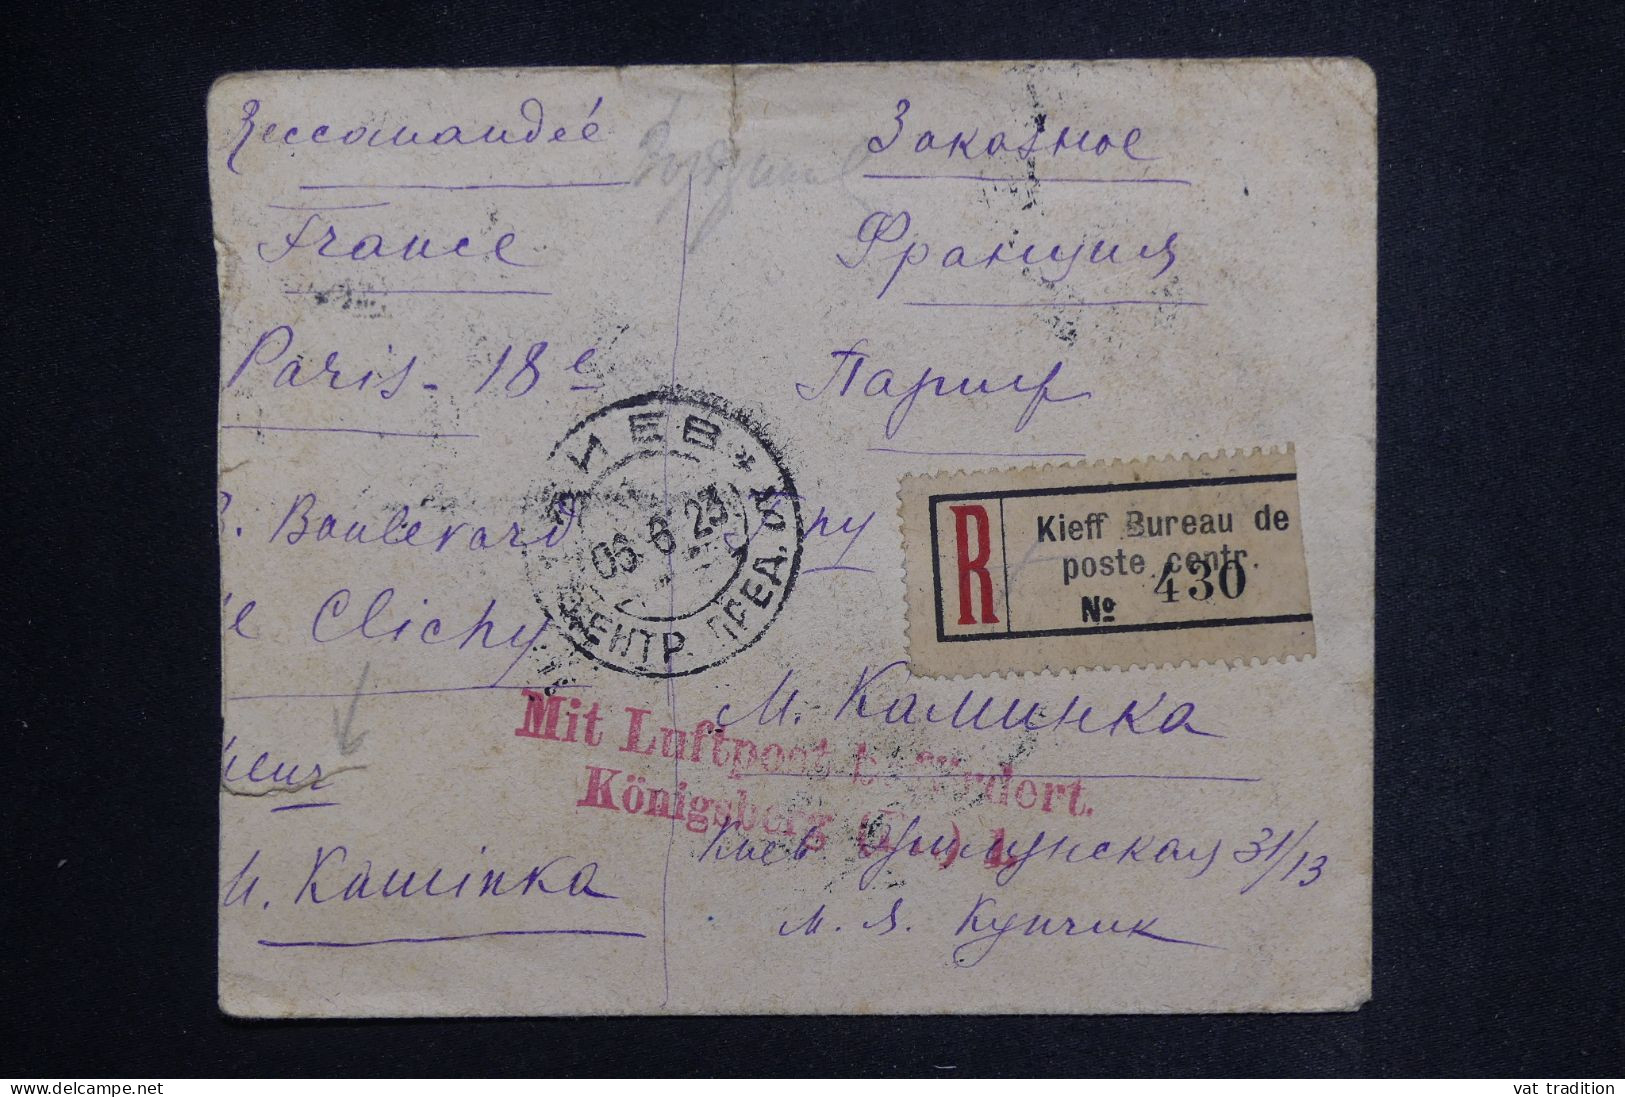 Reccomandée
France
Paris - 18 e
Boulevard
Clichy
M. Kaminka
Заказное
Франция
Париж
М. Каминка
Киев 31/13
М. Я. Купчик
КИЕВ
06.6.23
ЦЕНТР. ПРЕД.
R
Kieff Bureau de
poste centr.
№ 430
Mit Luftpost befördert.
Königsberg (Pr.) 1
delcampe.net
vat tradition